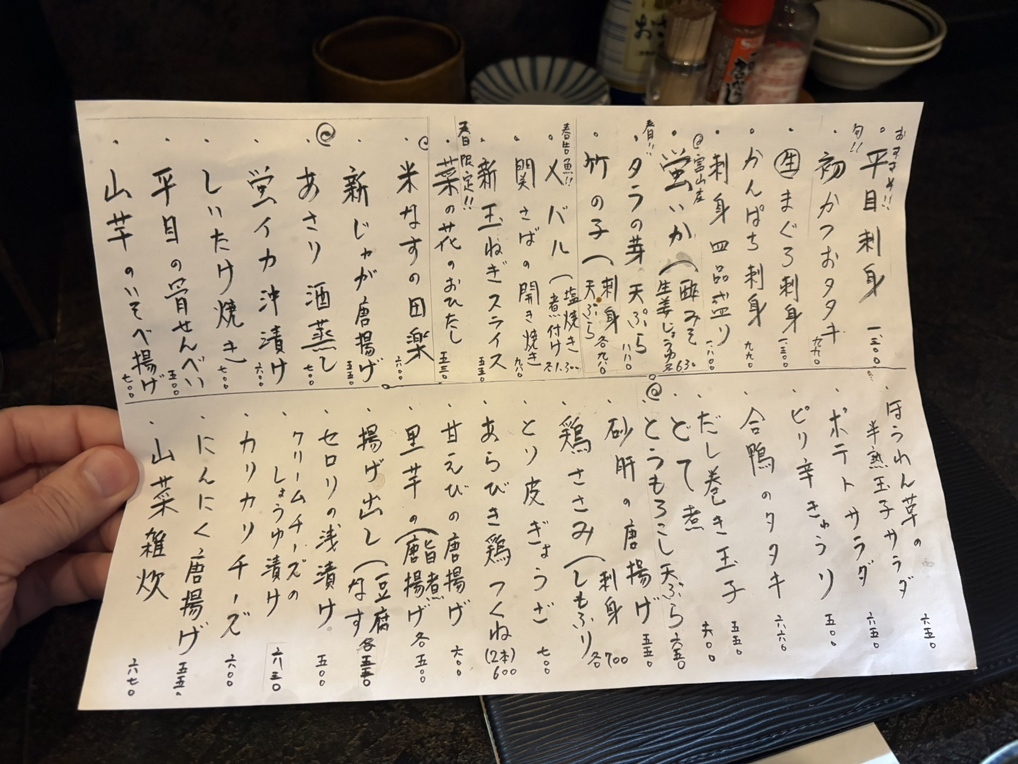 おすすめ!!
旬!!
・平目刺身 一三〇〇
・初かつおタタキ 九九〇
・生まぐろ刺身 一三〇〇
・かんぱち刺身 九九〇
・刺身四品盛り 一八〇〇
@富山産
・蛍いか(酢みそ 生姜じょうゆ 各630
春!!
・タラの芽天ぷら 八八〇
・竹の子(刺身 天ぷら 各九八〇
春告魚!!
・メバル(塩焼き 煮付け 各1.300
・関さばの開き焼き 九八〇
・新玉ねぎスライス 五五〇
春日限定!!
・菜の花のおひたし 五五〇
@
・米なすの田楽 六〇〇
・新じゃが唐揚げ 五五〇
@
・あさり酒蒸し 七〇〇
・蛍イカ沖漬け 六〇〇
・しいたけ焼き 七〇〇
・平目の骨せんべい 五〇〇
・山芋のいそべ揚げ 七〇〇
・ほうれん草の 六五〇
半熟玉子サラダ 六五〇
・ポテトサラダ 五〇〇
・ピリ辛きゅうり
・合鴨のタタキ 六六〇
・だし巻き玉子 五五〇
・どて煮 六〇〇
@
・とうもろこし天ぷら 六五〇
・砂肝の唐揚げ 五五〇
・鶏ささみ(刺身 しもふり 各700
・とり皮ぎょうざ 七〇〇
・あらびき鶏つくね(2本) 600
・甘えびの唐揚げ 六〇〇
・里芋の(旨煮 唐揚げ 各五〇〇
・揚げ出し(豆腐 なす 各五五〇
・セロリの浅漬け 五〇〇
・クリームチーズの
しょうゆ漬け 六三〇
・カリカリチーズ 六〇〇
・にんにく唐揚げ 五五〇
・山菜雑炊 六七〇